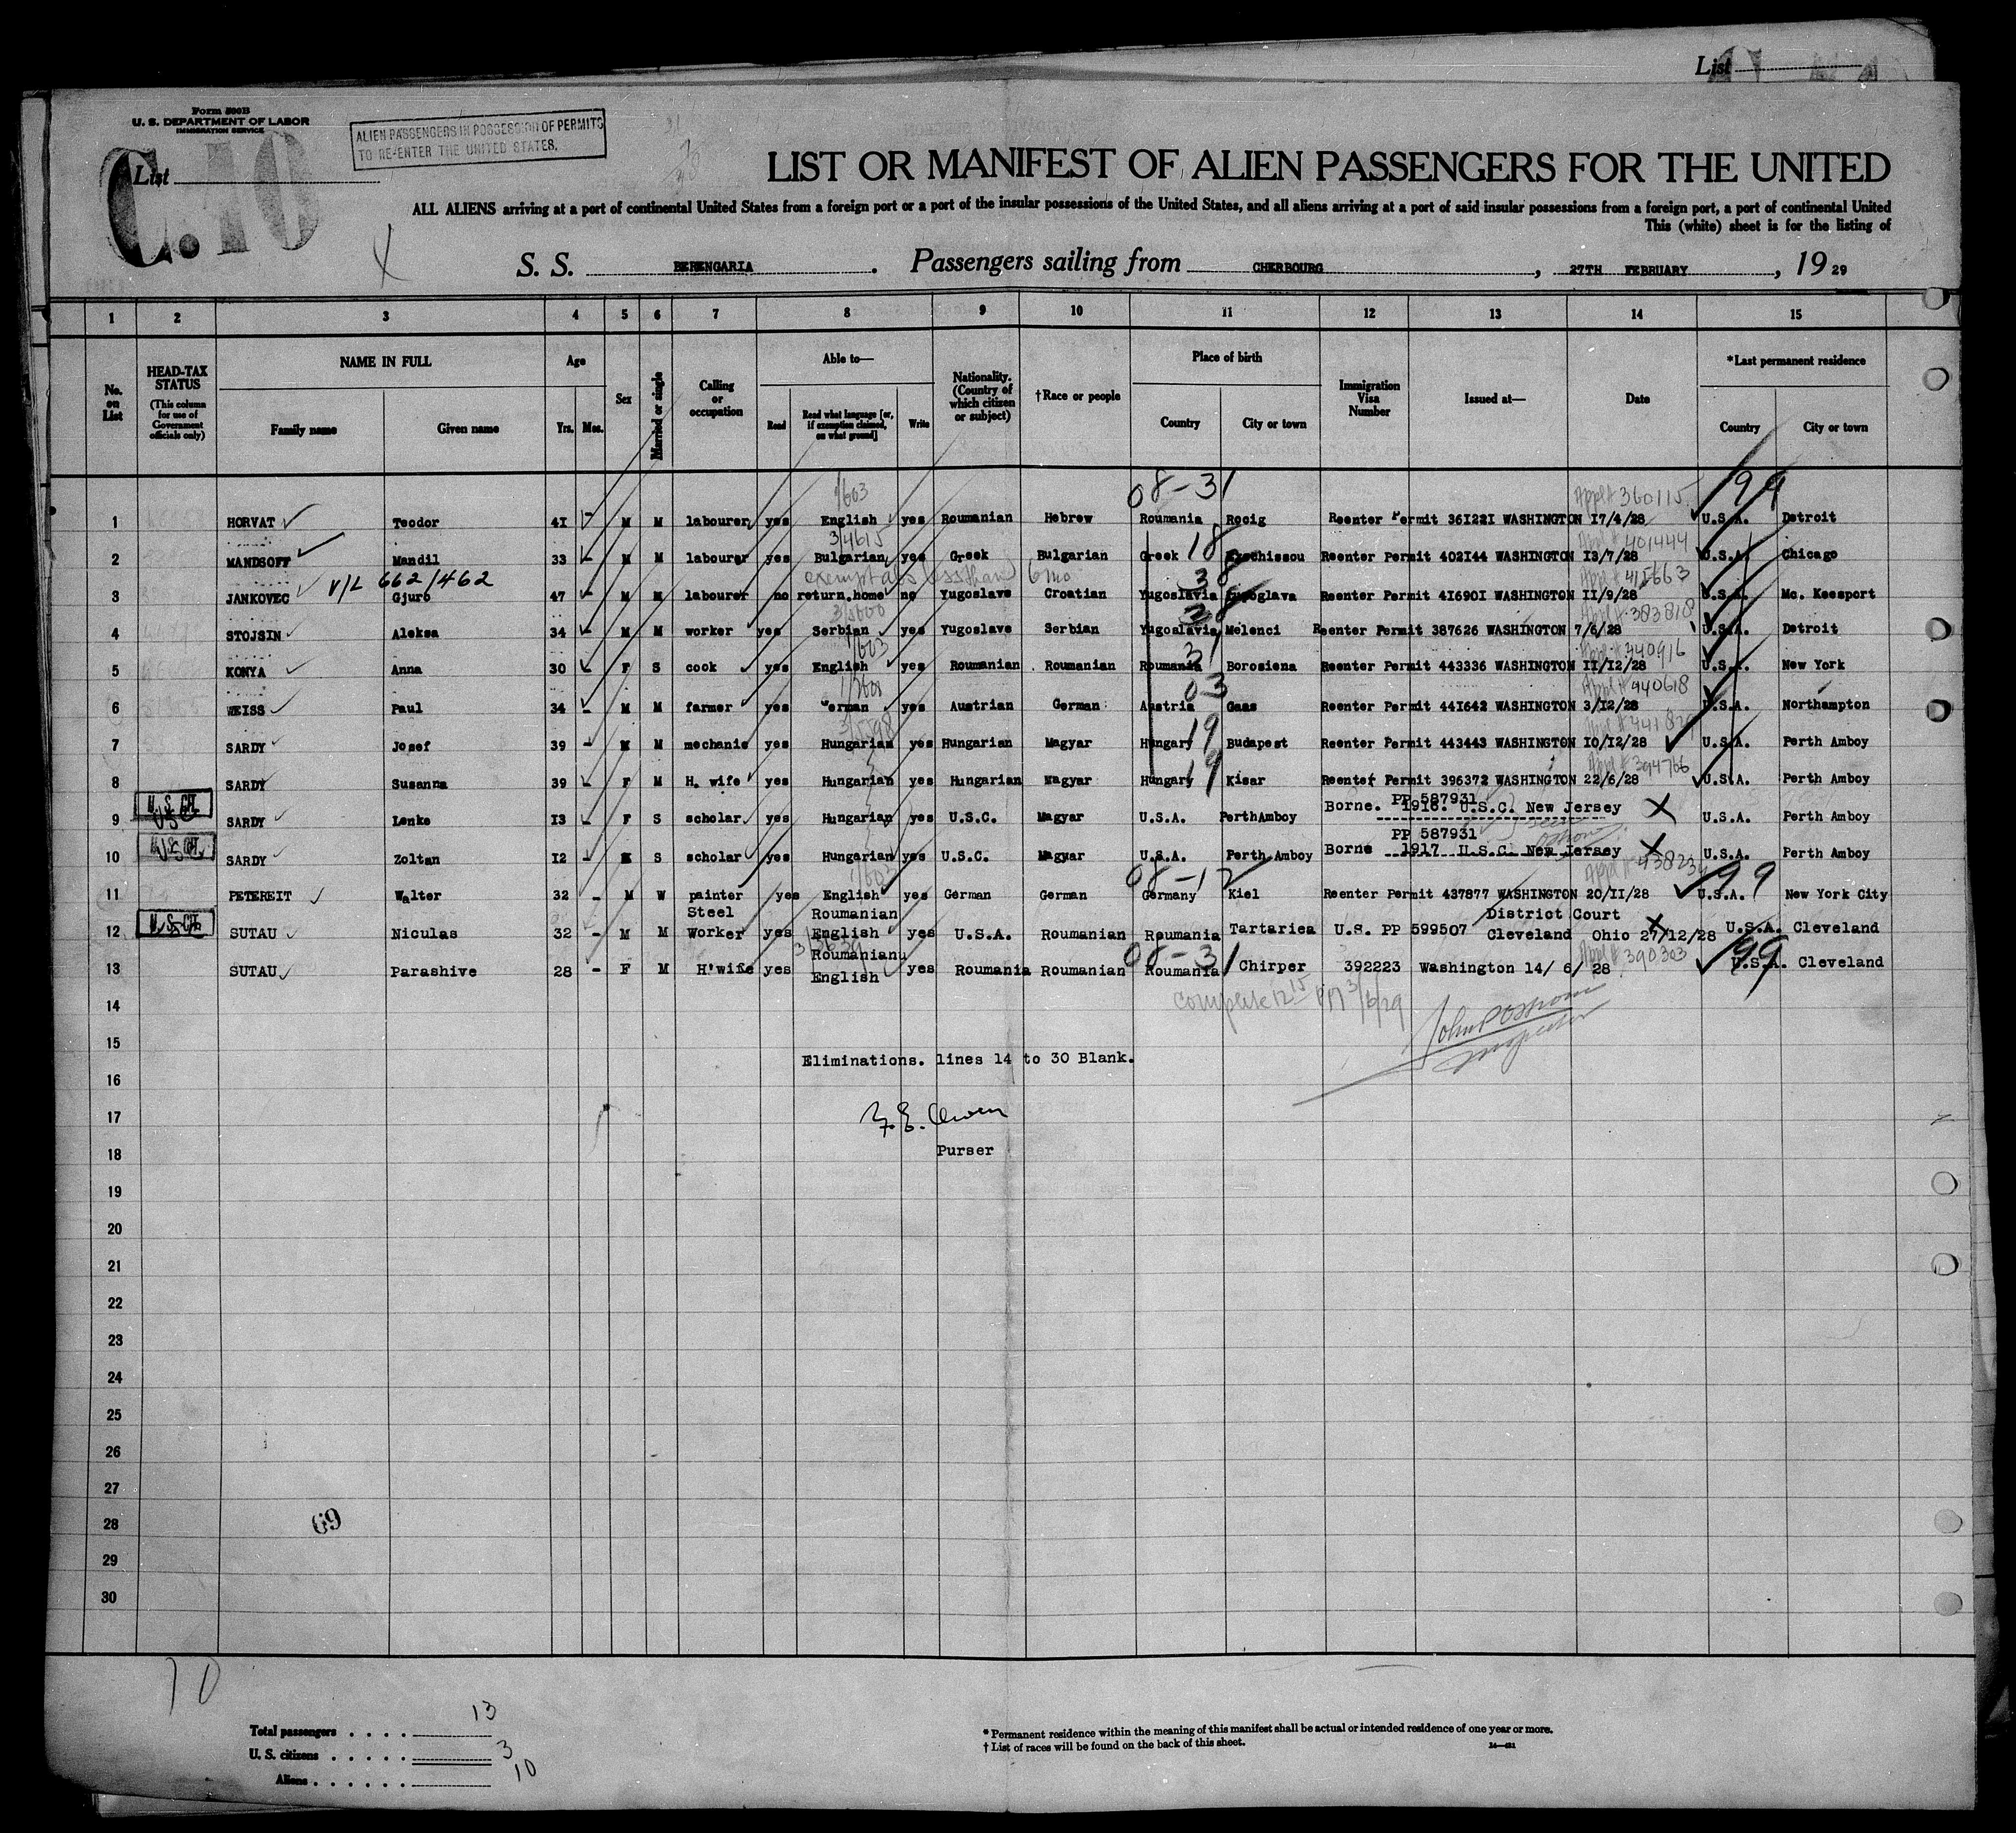 List
Form 500B
U. S. DEPARTMENT OF LABOR
IMMIGRATION SERVICE
ALIEN PASSENGERS IN POSSESSION OF PERMITS
TO RE-ENTER THE UNITED STATES.
List
C.16
LIST OR MANIFEST OF ALIEN PASSENGERS FOR THE UNITED
ALL ALIENS arriving at a port of continental United States from a foreign port or a port of the insular possessions of the United States, and all aliens arriving at a port of said insular possessions from a foreign port, a port of continental United
This (white) sheet is for the listing of
S. S. BERENGARIA. Passengers sailing from CHERBOURG, 27TH FEBRUARY, 19 29
1 2 3 4 5 6 7 8 9 10 11 12 13 14 15
No. on List
HEAD-TAX STATUS (This column for use of Government officials only)
NAME IN FULL Family name Given name
Age Yrs. Mos.
Sex
Married or single
Calling or occupation
Able to— Read Read what language [or, if exemption claimed, on what ground] Write
Nationality. (Country of which citizen or subject)
†Race or people
Place of birth Country City or town
Immigration Visa Number
Issued at—
Date
*Last permanent residence Country City or town
1/603 08-31 Appl# 360115 99
1 HORVAT Teodor 41 - M M labourer yes English yes Roumanian Hebrew Roumania Rocig Reenter Permit 361221 WASHINGTON 17/4/28 U.S.A. Detroit
3/4615 18 Appl# 401444
2 MANDSOFF Mandil 33 - M M labourer yes Bulgarian yes Greek Bulgarian Greek Reenter Permit 402144 WASHINGTON 13/7/28 U.S.A. Chicago
V/L 662/462 exempt abs less than 6 mo 38 Appl# 415663
3 JANKOVEC Gjuro 47 - M M labourer no return home no Yugoslave Croatian Yugoslavia Reenter Permit 416901 WASHINGTON 11/9/28 U.S.A. Mc. Keesport
38 Appl# 383818
4 STOJSIN Aleksa 34 - M M worker yes Serbian yes Yugoslave Serbian Yugoslavia Melenci Reenter Permit 387626 WASHINGTON 7/6/28 U.S.A. Detroit
1/603 31 Appl# 440916
5 KONYA Anna 30 - F S cook yes English yes Roumanian Roumanian Roumania Borosiena Reenter Permit 443336 WASHINGTON 11/12/28 U.S.A. New York
03 Appl# 440618
6 WEISS Paul 34 - M M farmer yes German yes Austrian German Austria Gaas Reenter Permit 441642 WASHINGTON 3/12/28 U.S.A. Northampton
19
7 SARDY Josef 39 - M M mechanic yes Hungarian yes Hungarian Magyar Hungary Budapest Reenter Permit 443443 WASHINGTON 10/12/28 U.S.A. Perth Amboy
19 Appl# 394766
8 SARDY Susanna 39 F M H. wife yes Hungarian yes Hungarian Magyar Hungary Kisar Reenter Permit 396372 WASHINGTON 22/6/28 U.S.A. Perth Amboy
U. S. CIT. PP 587931
9 USC SARDY Lenke 13 - F S scholar yes Hungarian yes U.S.C. Magyar U.S.A. PerthAmboy Borne. 1916. U.S.C. New Jersey X U.S.A. Perth Amboy
PP 587931
10 USC SARDY Zoltan 12 - M S scholar yes Hungarian yes U.S.C. Magyar U.S.A. Perth Amboy Borne 1917 U.S.C. New Jersey X U.S.A. Perth Amboy
1/603 08-12 99
11 PETEREIT Walter 32 - M W painter yes English yes German German Germany Kiel Reenter Permit 437877 WASHINGTON 20/11/28 U.S.A. New York City
U. S. CIT. Steel Roumanian District Court
12 SUTAU Niculas 32 - M M Worker yes English yes U.S.A. Roumanian Roumania Tartariea U.S. PP 599507 Cleveland Ohio 27/12/28 X U.S.A. Cleveland
Roumanianu 08-31 Appl# 390303 99
13 SUTAU Parashive 28 - F M H'wife yes English yes Roumania Roumanian Roumania Chirper 392223 Washington 14/ 6/ 28 U.S.A. Cleveland
14
complete 12 15 PM 3/6/29
15
John
Inspector
Eliminations. lines 14 to 30 Blank.
16
17
F. E. Owen
18 Purser
19
20
21
22
23
24
25
26
27
28
69
29
30
10
Total passengers . . . . 13
U. S. citizens . . . . . 3
Aliens . . . . . . 10
* Permanent residence within the meaning of this manifest shall be actual or intended residence of one year or more.
† List of races will be found on the back of this sheet.